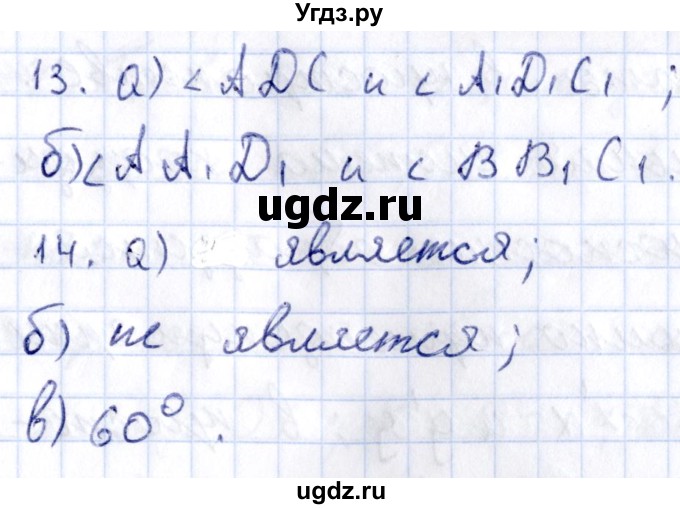 Угдз.ру
13. а) < ADC и < A₁D₁C₁ ;
б) < A A₁ D₁ и < B B₁ C₁.
ugdz.ru
14. а) является;
б) не является;
в) 60° .
ugdz.ru